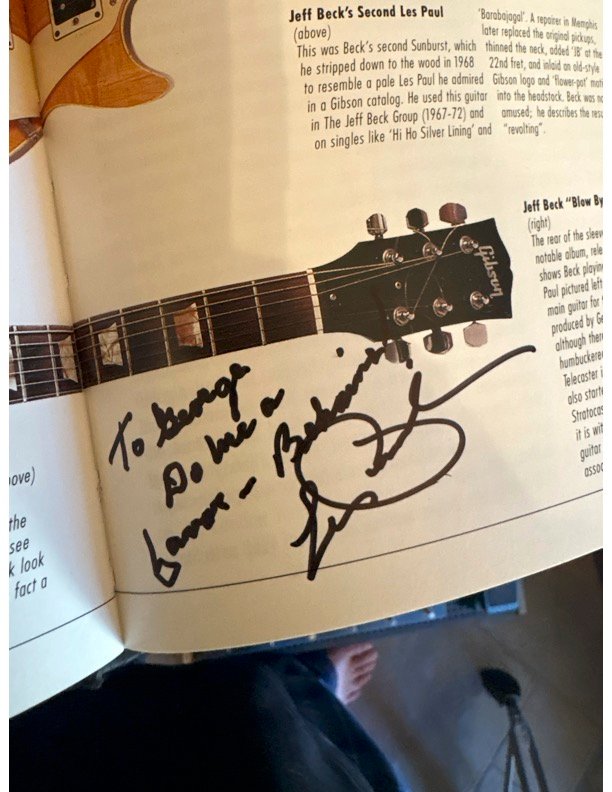 Jeff Beck's Second Les Paul
(above)
This was Beck's second Sunburst, which
he stripped down to the wood in 1968
to resemble a pale Les Paul he admired
in a Gibson catalog. He used this guitar
in The Jeff Beck Group (1967-72) and
on singles like 'Hi Ho Silver Lining' and
'Barabajagal'. A repairer in Memphis
later replaced the original pickups,
thinned the neck, added 'JB' at the
22nd fret, and inlaid an old-style
Gibson logo and 'flower-pot'
into the headstock. Beck was
amused; he describes the
"revolting".
Gibson
Jeff Beck "Blow By
(right)
The rear of the
notable album,
shows Beck
Paul pictured left
main guitar for
produced by
although
Telecaster
also
it is
guitar
To George
Do me a
favor - Behaive!
Les Paul
the
see
look
fact a